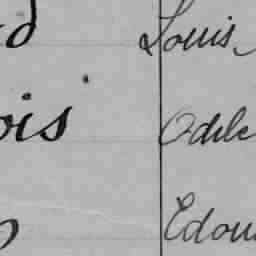 d Louis
ois Odile
Edou